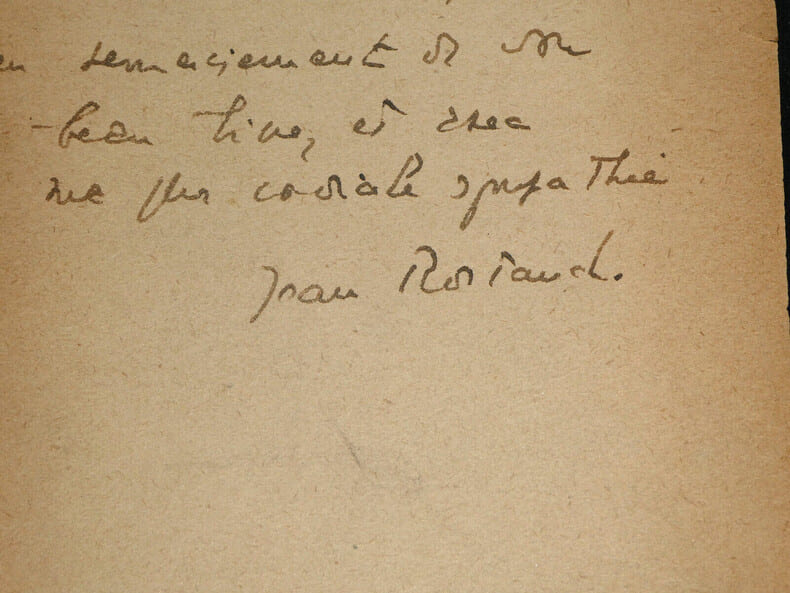 en remerciement de son
beau livre, et avec
ma plus cordiale sympathie
Jean Rostand.